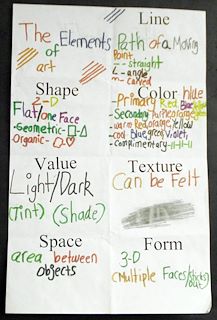 Line
The Elements
of art
Path of a Moving
Point
straight
L - angle
m - curved
Shape
2-D
Flat/one Face
-Geometric-□-△
Organic-
Color
blue
-Primary Red Blue
-Secondary Purple orange green
-warm Red, orange, Yellow
-cool Blue, green, Violet,
-Complimentary-11-11-11
Value
Light/Dark
(Tint) (Shade)
Texture
Can be Felt
Space
area between
objects
Form
3-D
(Multiple Faces/sticks
out)